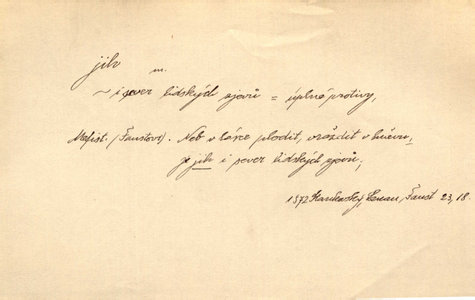 jih
m.
~ i sever lidských zjevů = úplné protivy,
Mefist. (Faustovi). Neb v lásce plodit, vražditi v hněvu,
je jih i sever lidských zjevů;
1872 Stankovský, Lenau, Faust 23, 18.